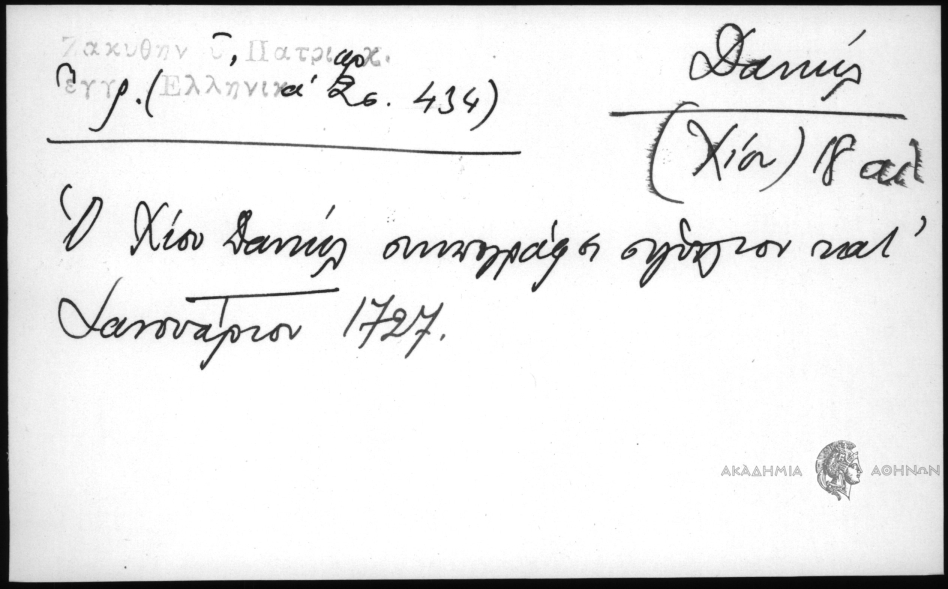 Ζακυθην ου, Πατριαρχ.
ἔγγρ. (Ἑλληνικά 2 σ. 434)
Δανιήλ
(Χίου) 18 αἰ
Ὁ Χίου Δανιήλ συνυπογράφει κατ'
Ἰανουάριον 1727.
ΑΚΑΔΗΜΙΑ ΑΘΗΝΩΝ